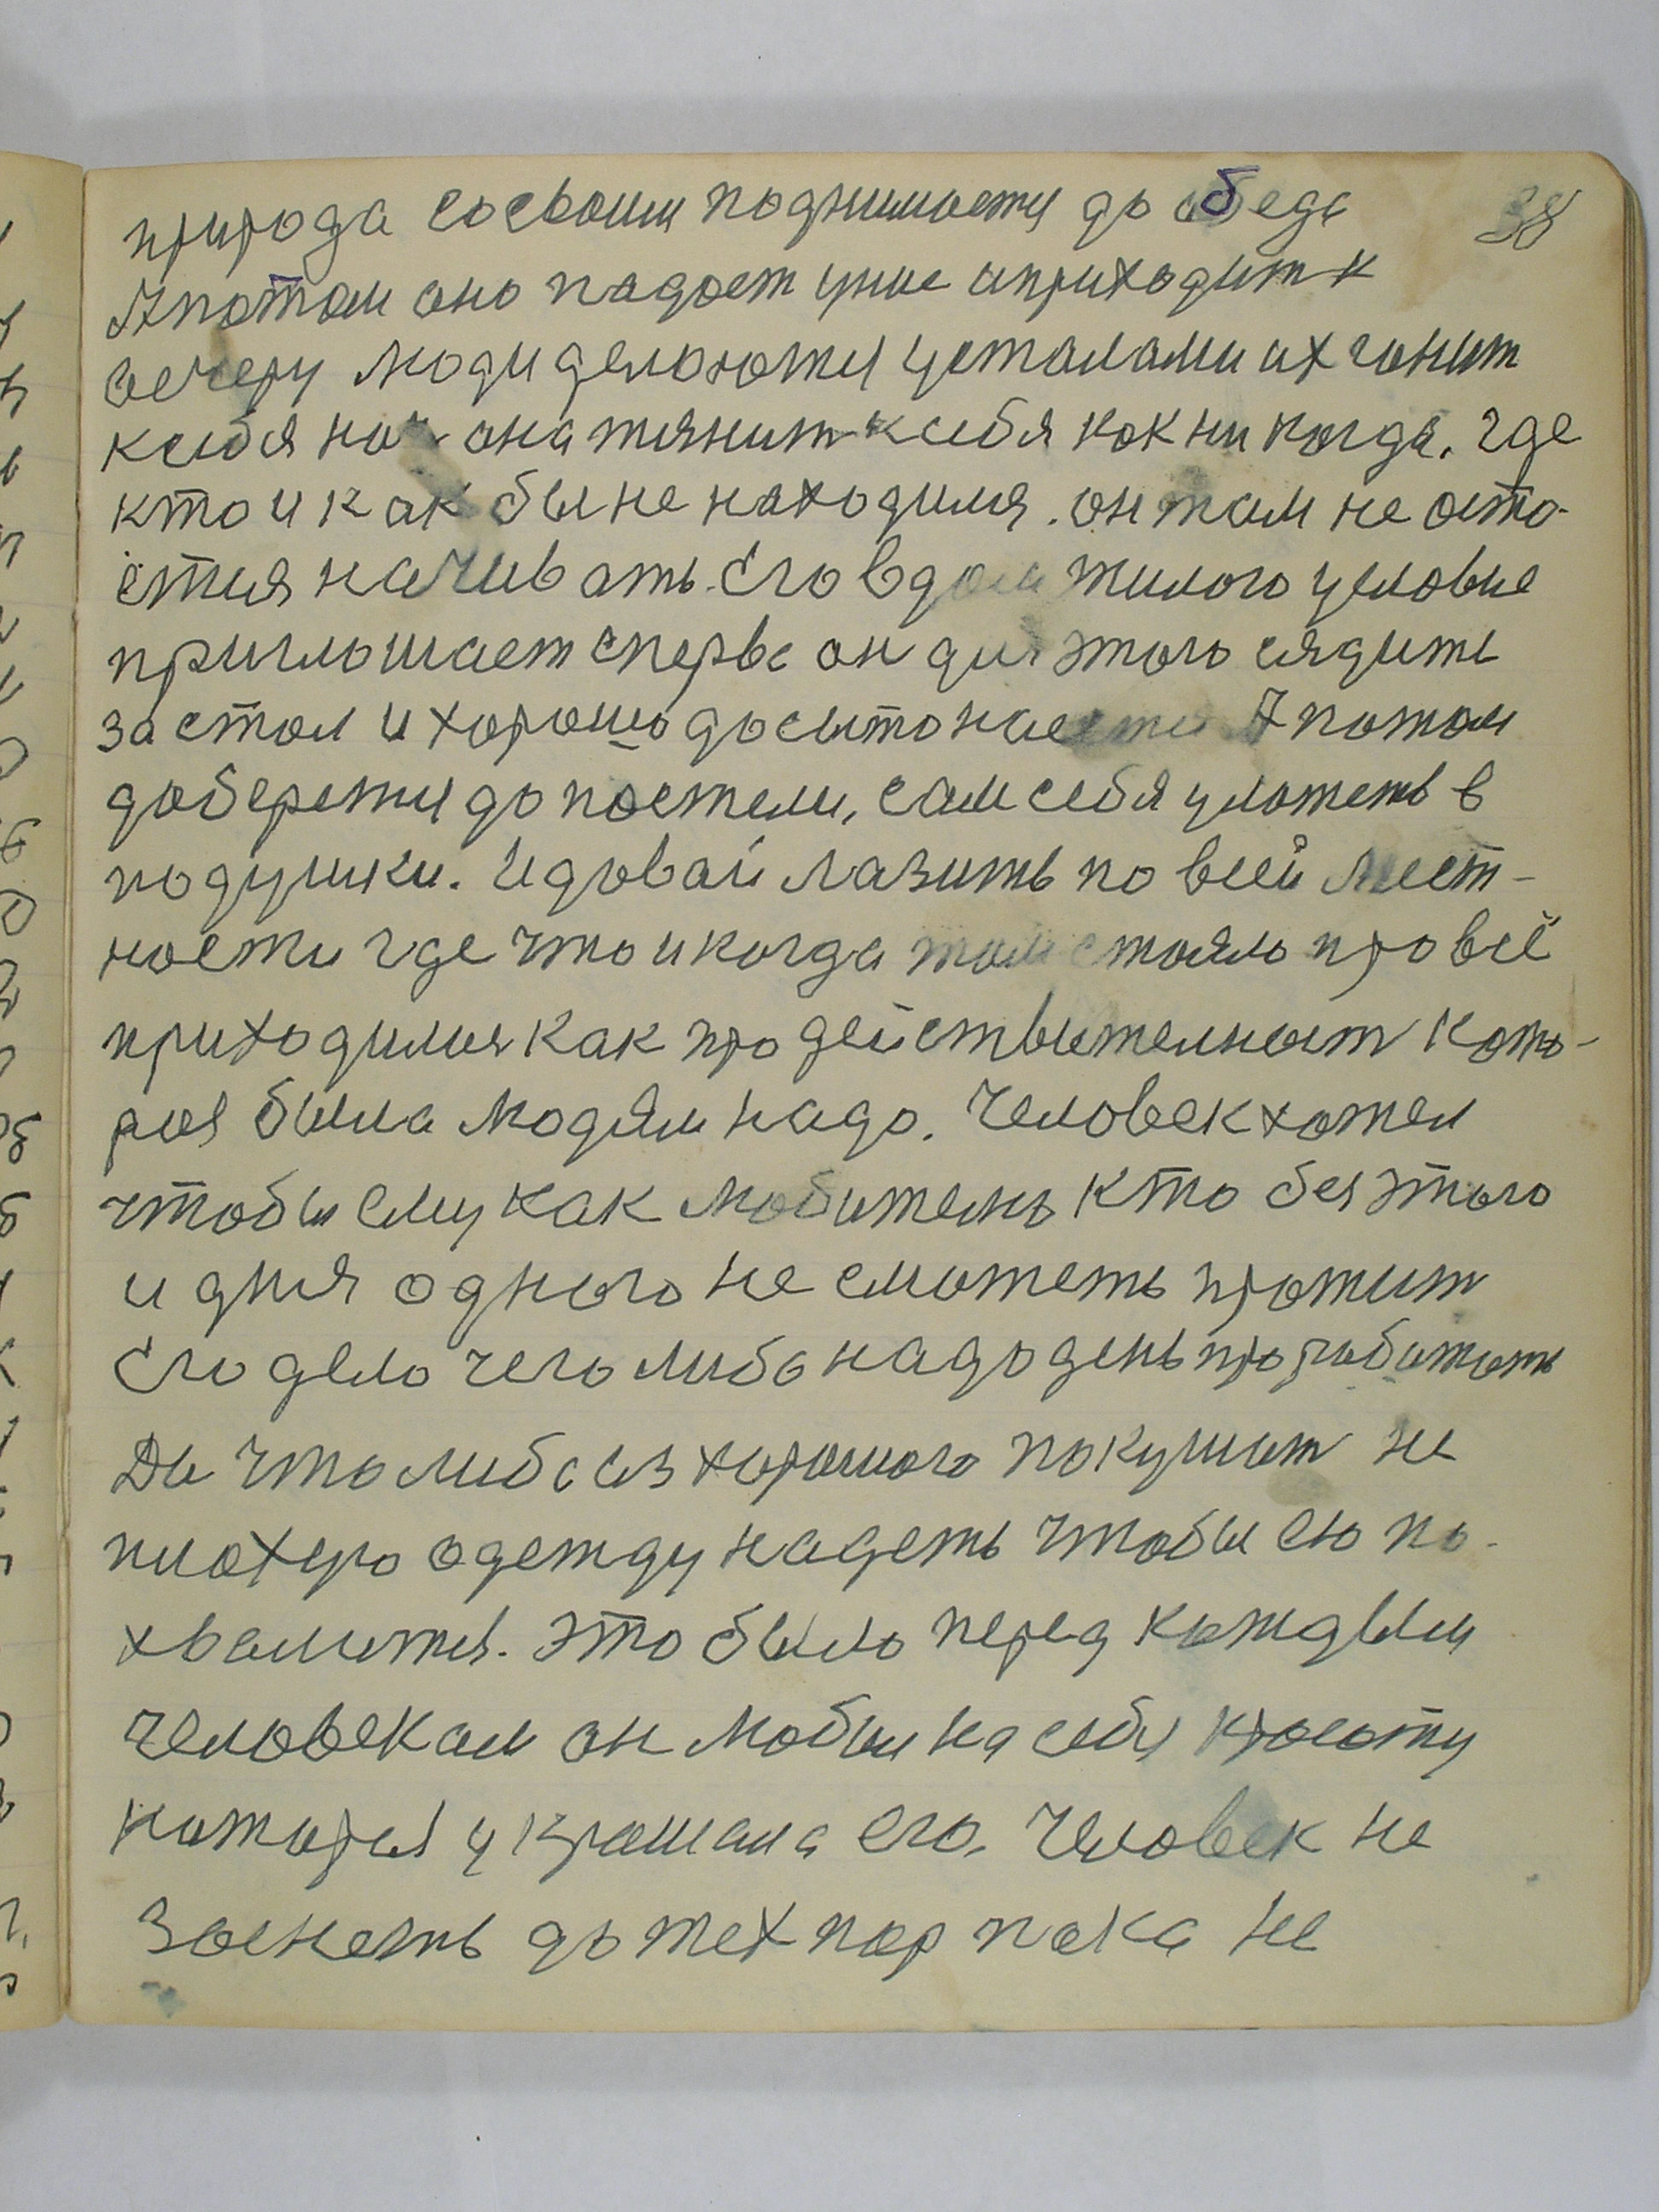 природа сосвоим поднимается до обеда 38
А потом оно падает уние и приходит к
вечеру люди делаются усталами их гонит
ксебя ноч она тянит к себя как ни когда. где
кто и как бы не находился. он там не оста-
ется начивать. Его в дом жилого условие
приглошает сперва он для этого сядить
за стол и хорошо досыто наестся А потом
доберется до постели, сам себя уложеть в
подушки. И довай лазить по всей мест-
ности где что и когда там стояло про всё
приходился как про действителност кото-
рая была людям надо. Человек хотел
чтобы ему как любитель кто без этого
и дня одного не сможеть прожит
Его дело чего либо надо день проработать
Да что либо из хорошого покушат не
плохую одежду надеть чтобы ею по-
хвалится. Это было перед каждым
человекам он любил на себу красоту
которая украшала его. Человек не
заснеть до тех пор пака не